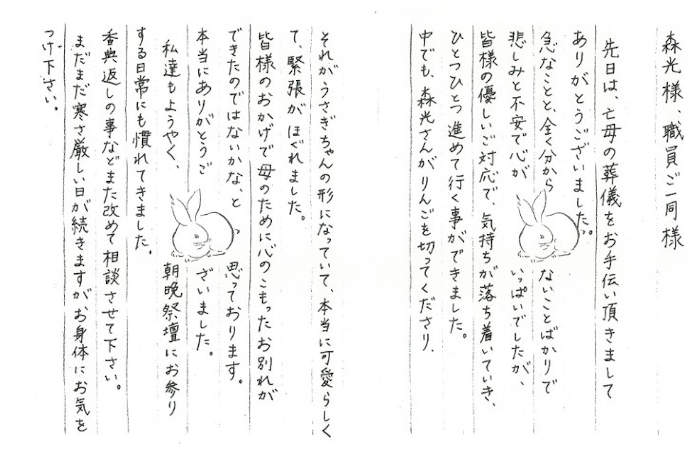 森光様、職員ご一同様
先日は、亡母の葬儀をお手伝い頂きまして
ありがとうございました。
急なことと、全く分からないことばかりで
悲しみと不安で心がいっぱいでしたが、
皆様の優しいご対応で、気持ちが落ち着いていき、
ひとつひとつ進めて行く事ができました。
中でも、森光さんがりんごを切ってくださり、
それがうさぎちゃんの形になっていて、本当に可愛らしく
て、緊張がほぐれました。
皆様のおかげで母のために心のこもったお別れが
できたのではないかな、と思っております。
本当にありがとうございました。
私達もようやく、朝晩祭壇にお参り
する日常にも慣れてきました。
香典返しの事などまた改めて相談させて下さい。
まだまだ寒さ厳しい日が続きますがお身体にお気を
つけ下さい。